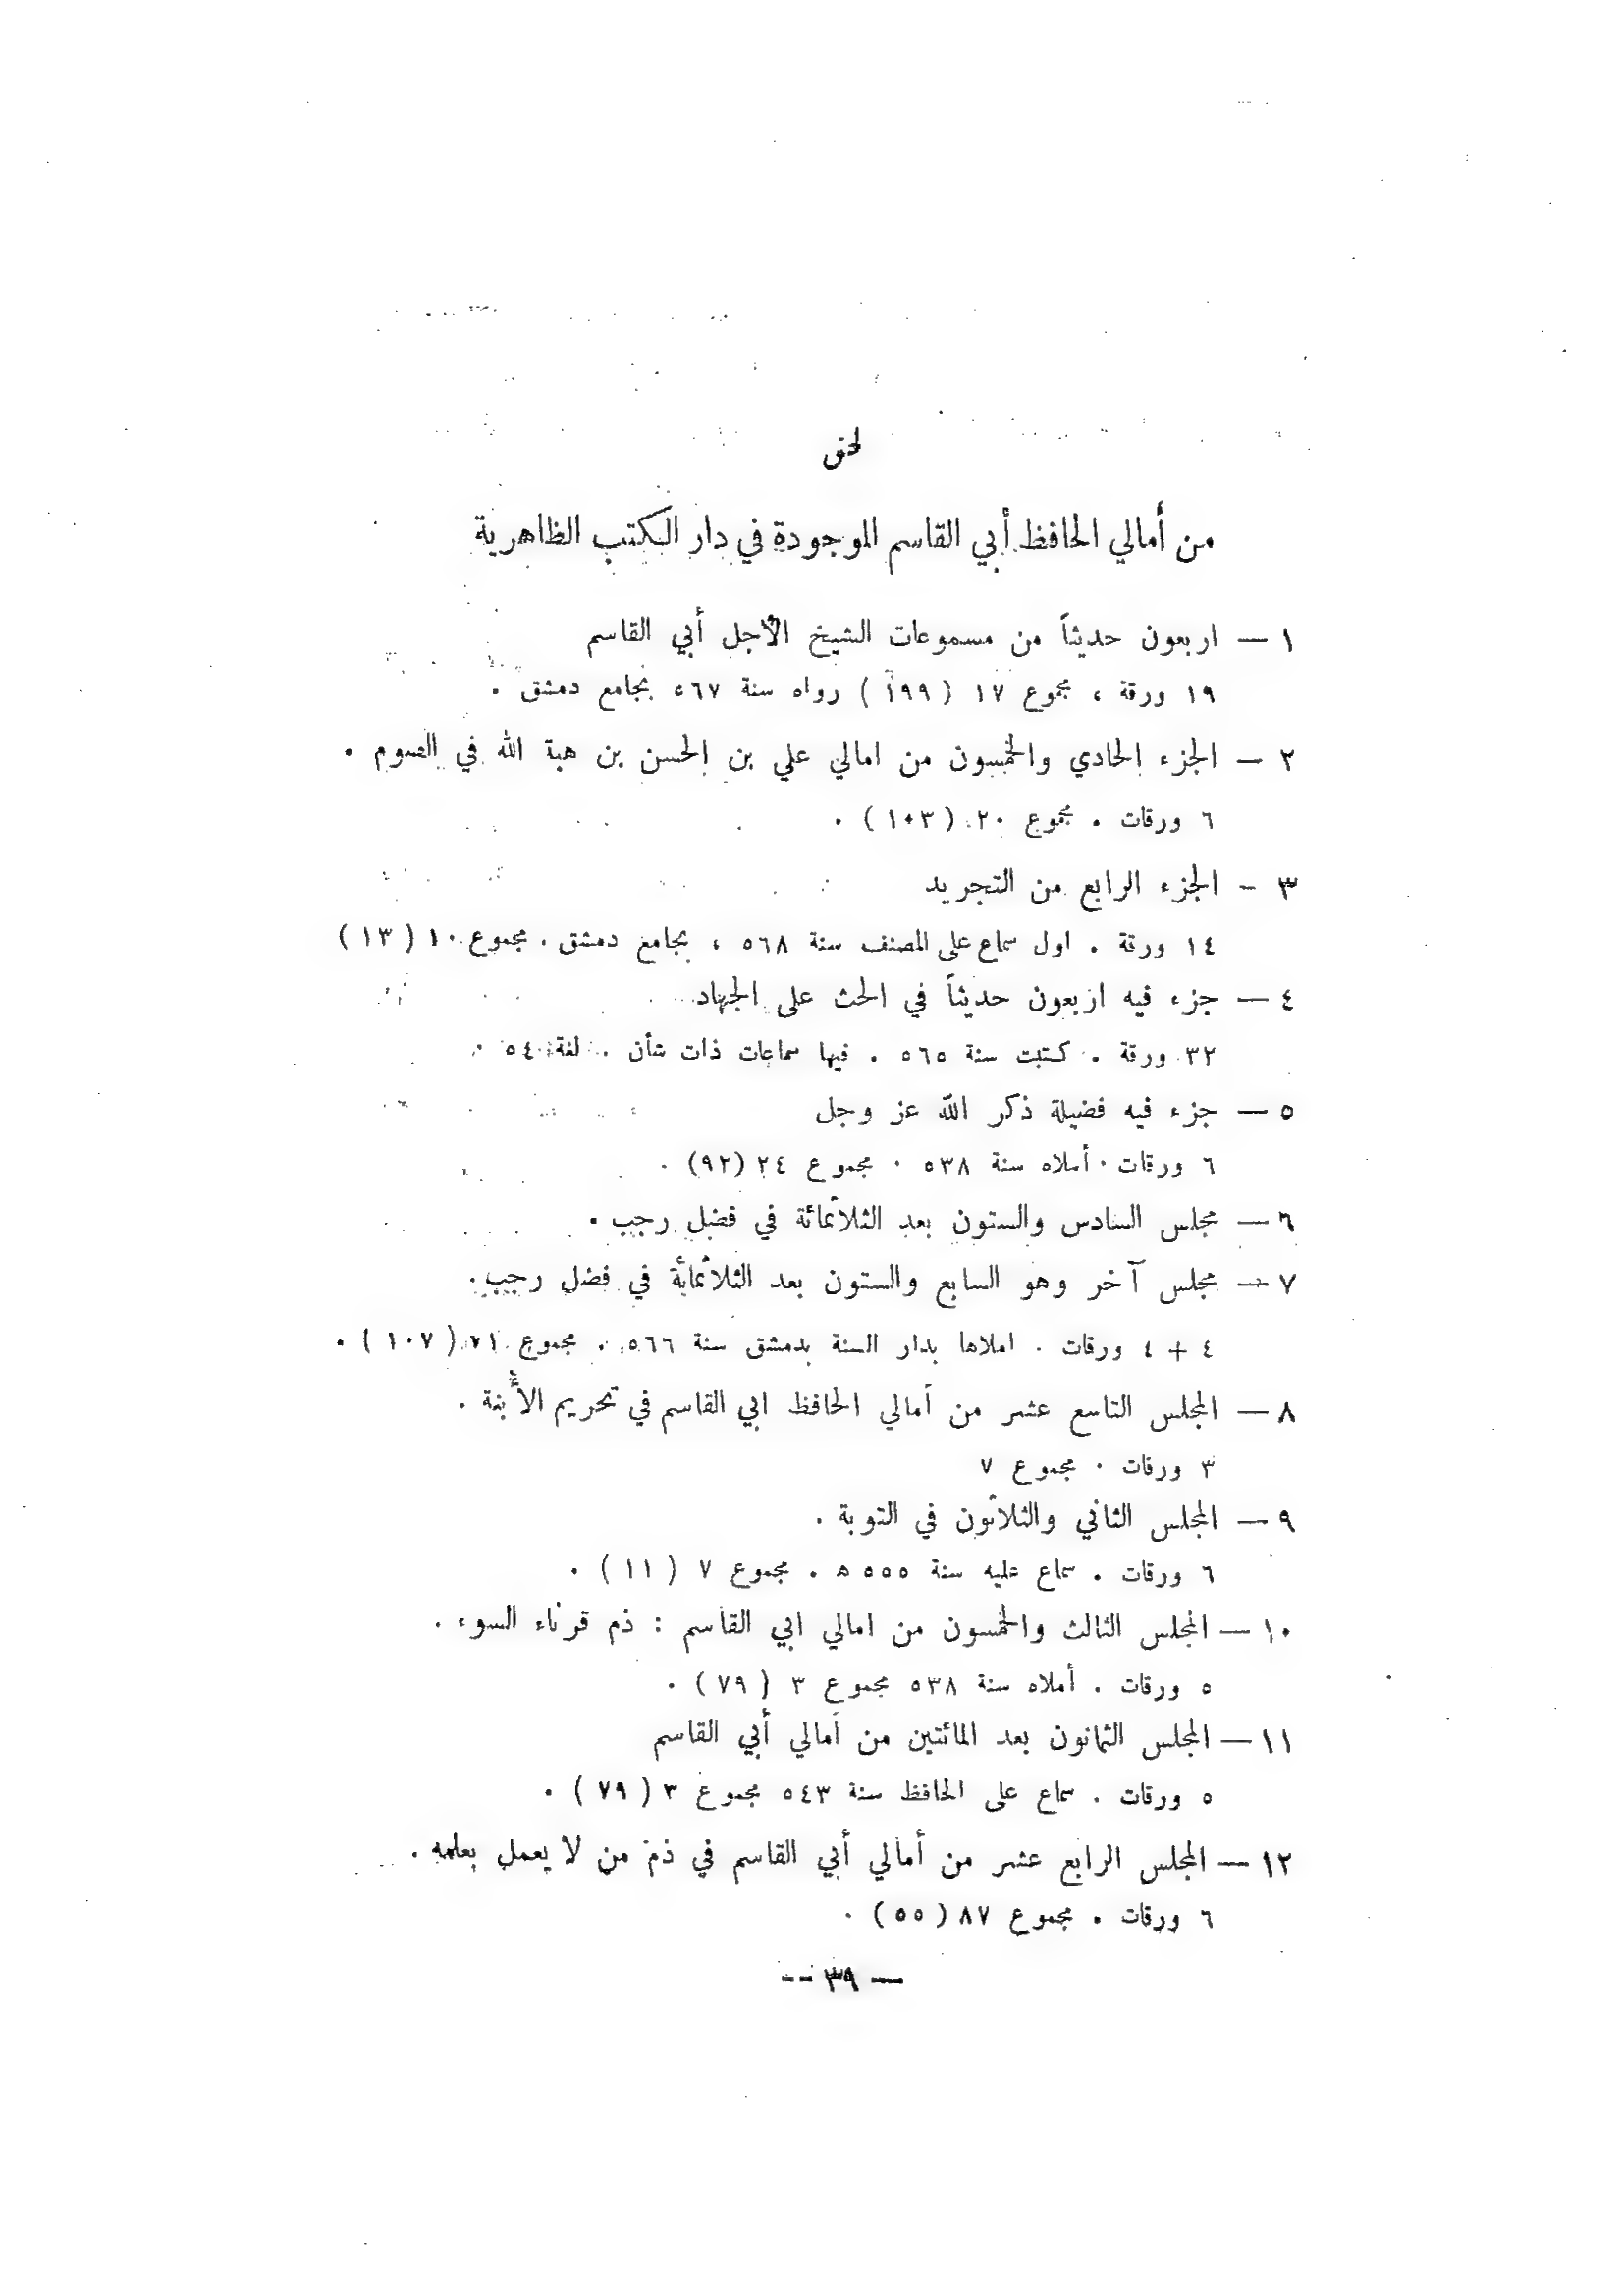 لحق
من أمالي الحافظ أبي القاسم الموجودة في دار الكتب الظاهرية
١ — اربعون حديثاً من مسموعات الشيخ الأجل أبي القاسم
١٩ ورقة ، مجموع ١٧ ( ١٩٩ ) رواه سنة ٥٦٧ بجامع دمشق .
٢ — الجزء الحادي والخمسون من امالي علي بن الحسن بن هبة الله في الصوم .
٦ ورقات . مجموع ٢٠ ( ١٠٣ ) .
٣ - الجزء الرابع من التجريد
١٤ ورقة . اول سماع على المصنف سنة ٥٦٨ ، بجامع دمشق . مجموع ١٠ ( ١٣ )
٤ — جزء فيه اربعون حديثاً في الحث على الجهاد
٣٢ ورقة . كتبت سنة ٥٦٥ . فيها سماعات ذات شأن . لغة ٥٤ .
٥ — جزء فيه فضيلة ذكر الله عز وجل
٦ ورقات . أملاه سنة ٥٣٨ . مجموع ٢٤ (٩٢) .
٦ — مجلس السادس والستون بعد الثلاثمائة في فضل رجب .
٧ — مجلس آخر وهو السابع والستون بعد الثلاثمائة في فضل رجب .
٤ + ٤ ورقات . املاها بدار السنة بدمشق سنة ٥٦٦ . مجموع ٧١ ( ١٠٧ ) .
٨ — المجلس التاسع عشر من أمالي الحافظ ابي القاسم في تحريم الأبنة .
٣ ورقات . مجموع ٧
٩ — المجلس الثاني والثلاثون في التوبة .
٦ ورقات . سماع عليه سنة ٥٥٥ ه . مجموع ٧ ( ١١ ) .
١٠ — المجلس الثالث والخمسون من امالي ابي القاسم : ذم قرناء السوء .
٥ ورقات . أملاه سنة ٥٣٨ مجموع ٣ ( ٧٩ ) .
١١ — المجلس الثمانون بعد المائتين من أمالي أبي القاسم
٥ ورقات . سماع على الحافظ سنة ٥٤٣ مجموع ٣ ( ٧٩ ) .
١٢ — المجلس الرابع عشر من أمالي أبي القاسم في ذم من لا يعمل بعلمه .
٦ ورقات . مجموع ٨٧ ( ٥٥ ) .
— ٣٩ —